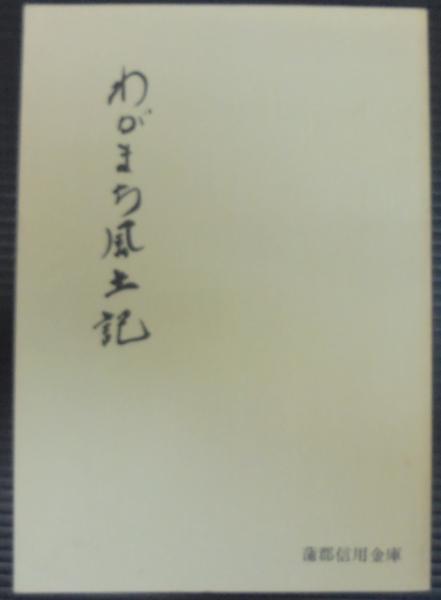 わがまち風土記
蒲郡信用金庫